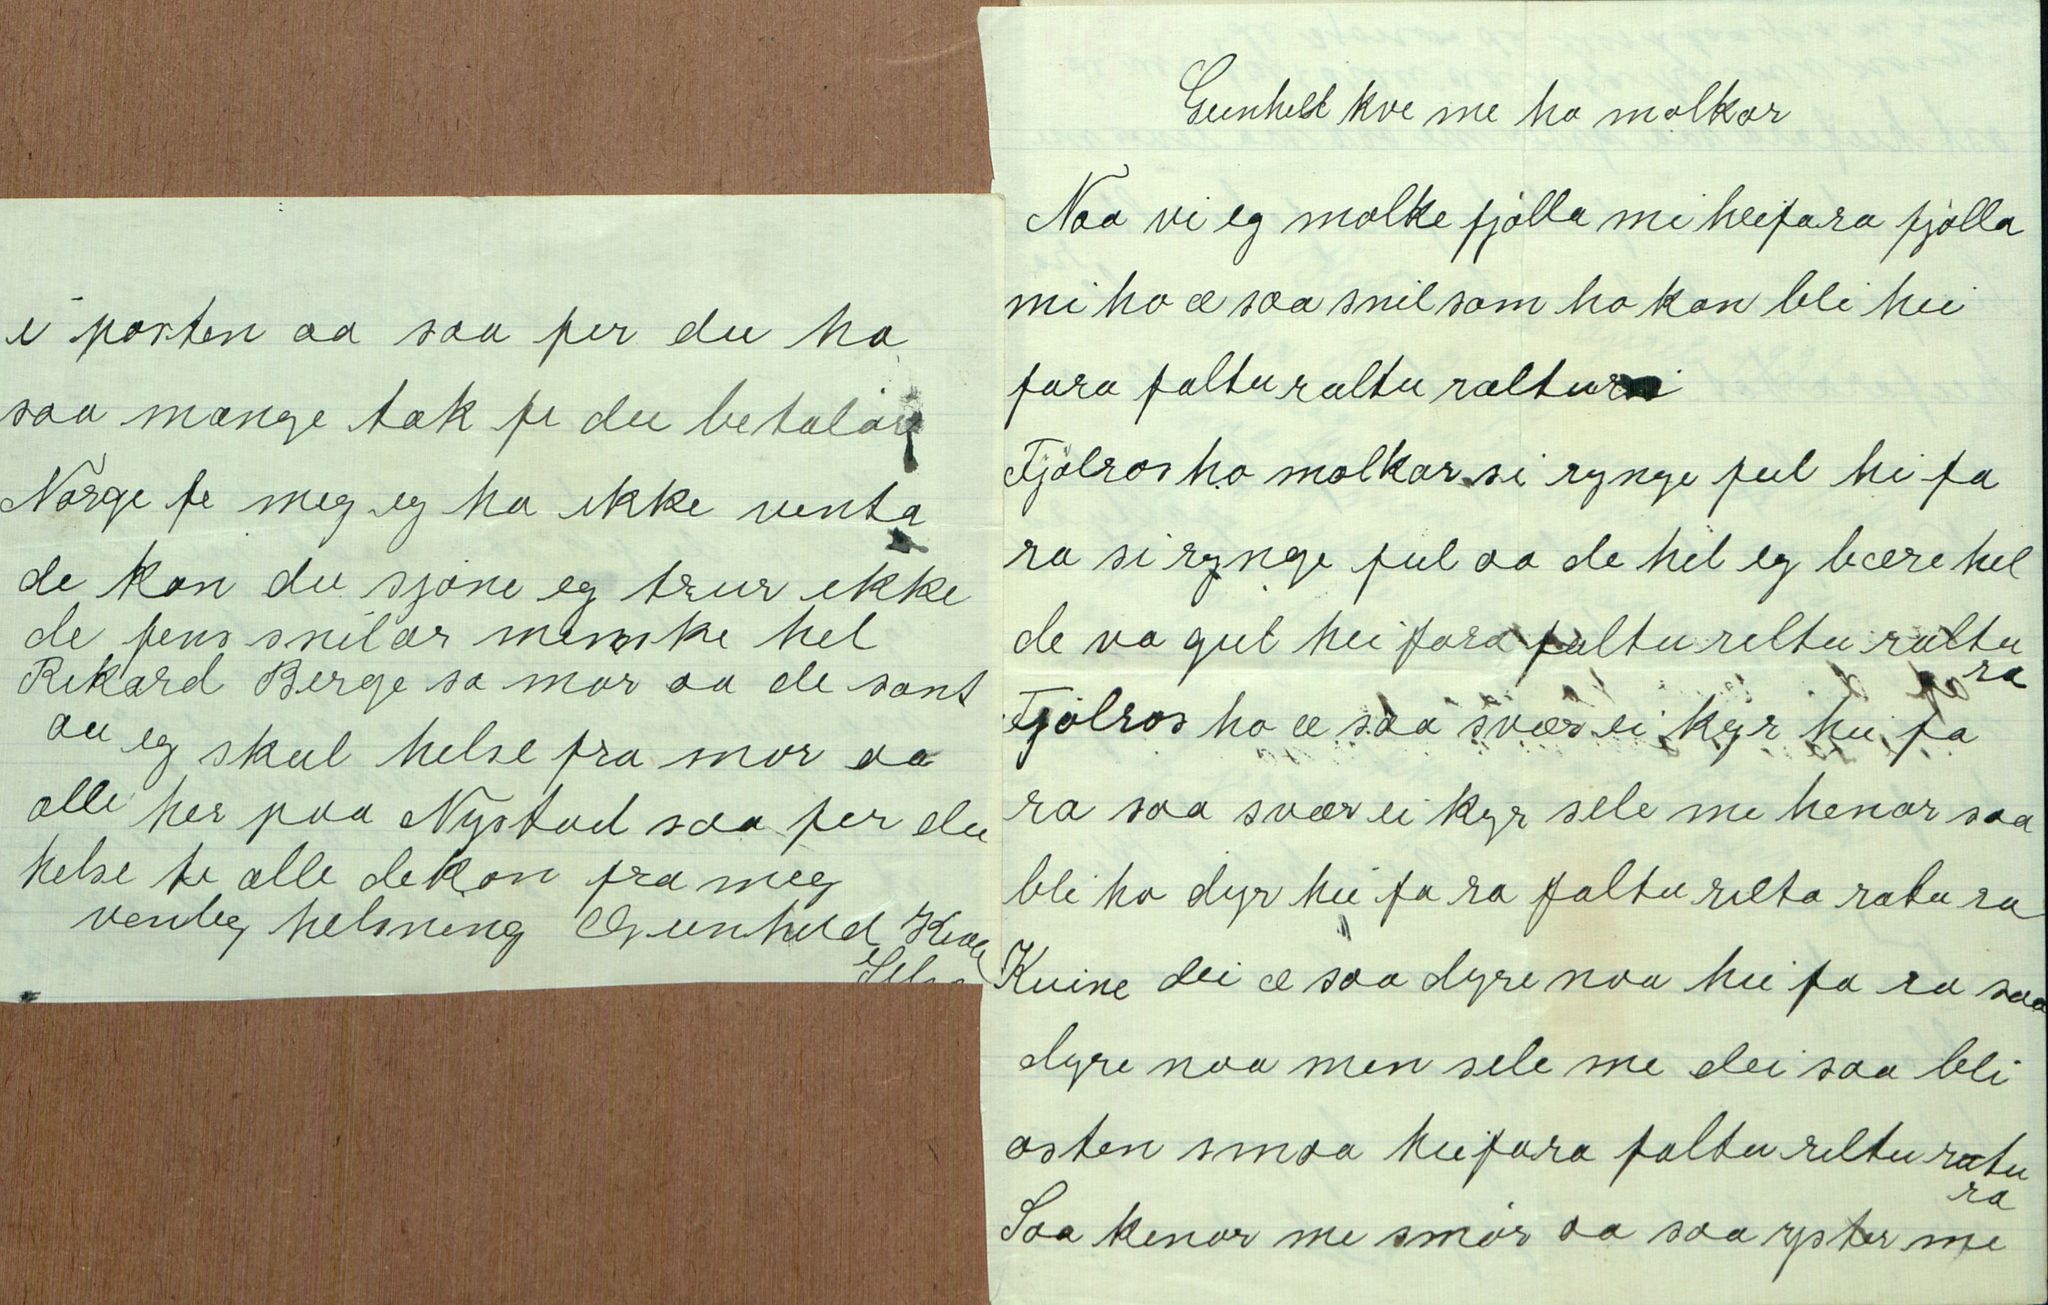 i posten aa saa fer du ha
saa mange tak fe du betalar
Norge fe meg eg ha ikke venta
de kan du sjøne eg trur ikke
de fens snilar menske hel
Rikard Berge sa mor aa de sant
au eg skul helse fra mor aa
alle her paa Nystad saa fer du
helse te alle dekan fra meg
venleg helsning Gunhild
Gunhild kve me ho molkar
Naa vi eg molke fjølla mi heifara fjølla
mi ho æ saa snil som ho kan bli hei
fara faltu raltu raltura
Fjølros ho molkar si rynge ful hei fa
ra si rynge ful aa de hel eg bære hel
de va gul hei fara faltu reltu raltu
ra
Fjølros ho æ saa svær ei kyr hei fa
ra saa svær ei kyr sele me henar saa
bli ho dyr hei fa ra faltu relta ratu ra
Kuine dei æ saa dyre naa hei fa ra saa
dyre naa men sele me dei saa bli
osten smaa heifara faltu reltu ratu
ra
Saa kenar me smør aa saa yster me